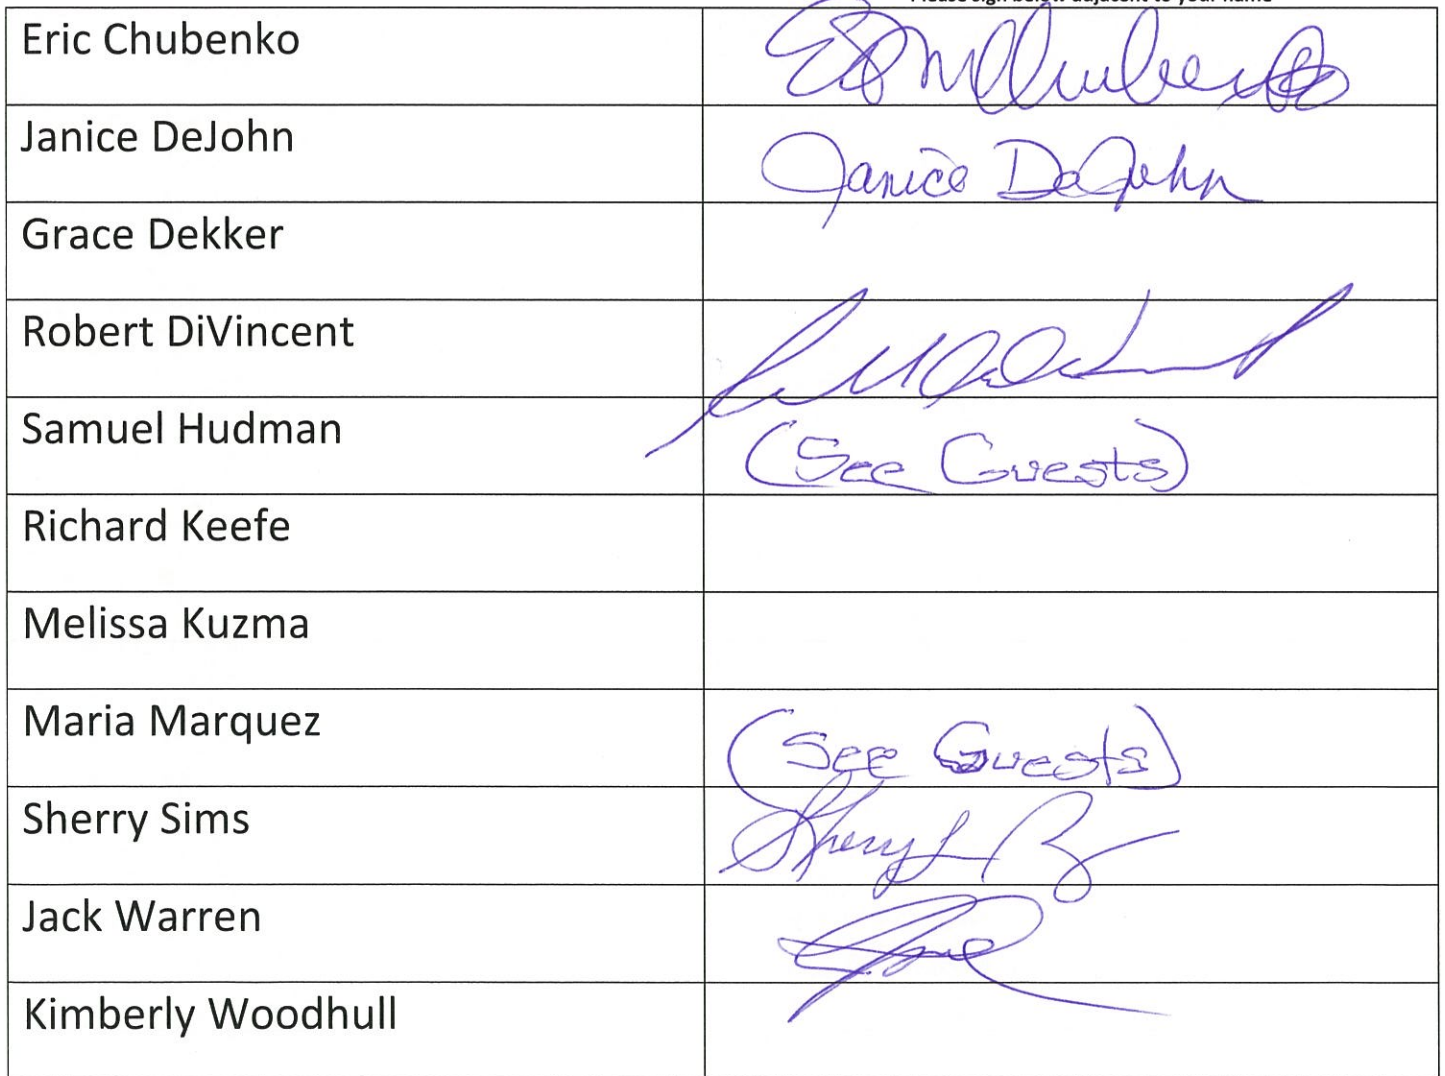 Please sign below adjacent to your name
Eric Chubenko
Janice DeJohn Janice DeJohn
Grace Dekker
Robert DiVincent
Samuel Hudman (See Guests)
Richard Keefe
Melissa Kuzma
Maria Marquez (See Guests)
Sherry Sims
Jack Warren
Kimberly Woodhull